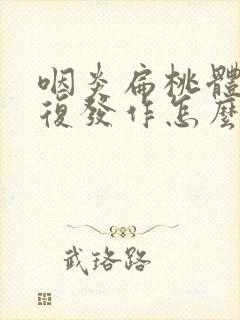 咽炎扁桃體
復發作怎麼
武珞路